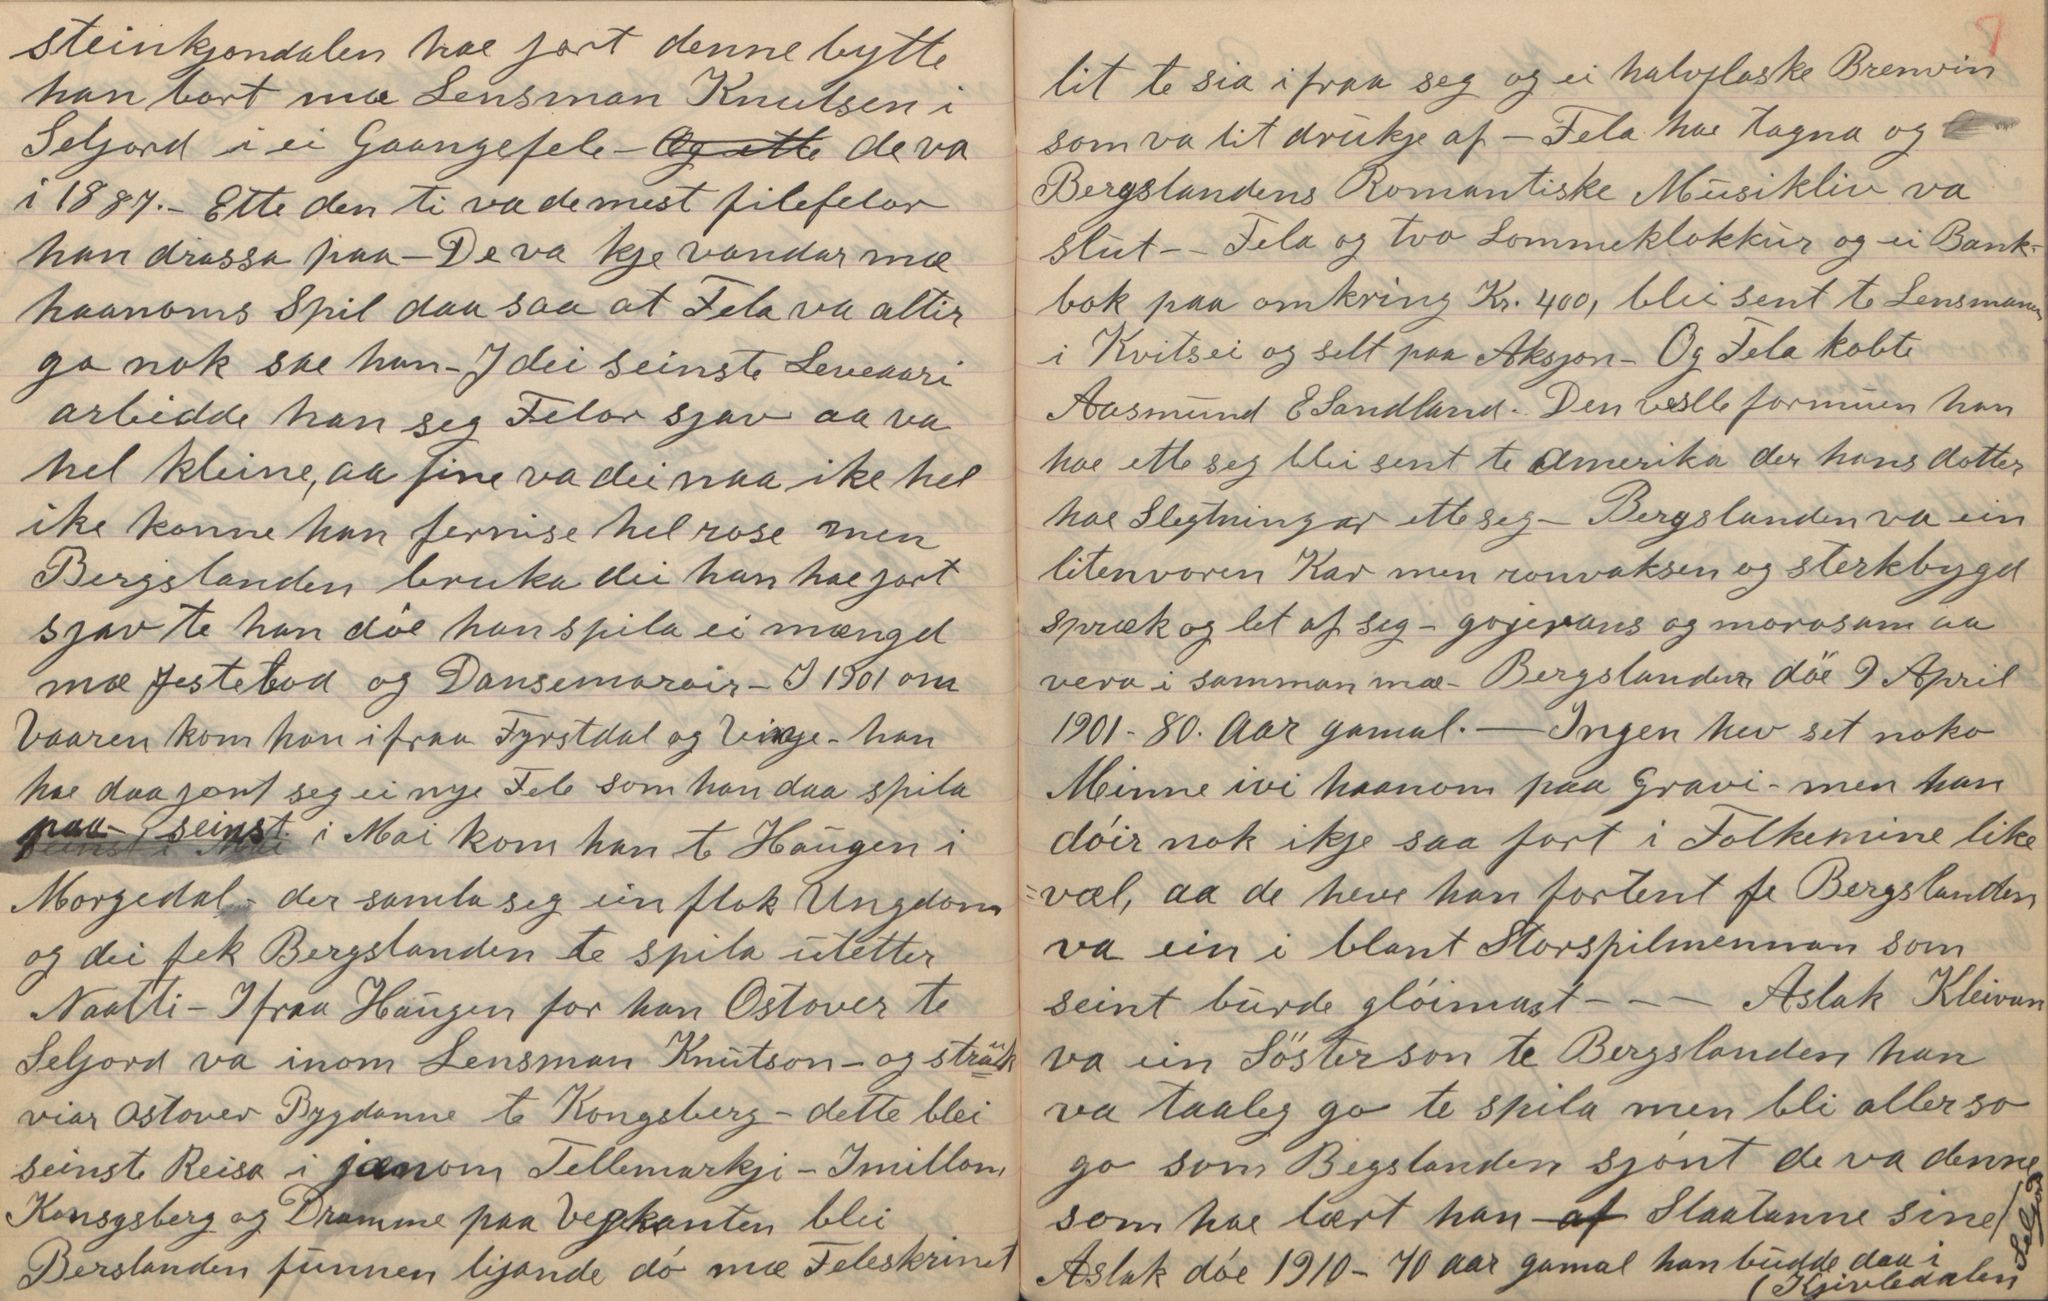 steinkjondalen hae jort denne bytte
han bort mæ Lensman Knutsen i
Seljord i ei Gaangefele - Og ette de va
i 1887. - Ette den ti va de mest filefelor
han drassa paa - De va kje vandar mæ
haanoms Spil daa saa at Fela va altir
go nok sae han - I dei seinste Leveaari
arbidde han seg Felor sjav aa va
hel kleine, aa fine va dei naa ike hel
ike konne han fernise hel rose men
Bergslanden bruka dei han hae jort
sjav te han döe han spila ei mængd
mæ Jestebod og Dansemoroir - I 1901 om
Vaaren kom han ifraa Fyrstdal og Vinje - han
hae daa jort seg ei nye Fele som han daa spila
paa - seinst i Mai kom han te Haugen i
Morgedal - der samla seg ein flok Ungdom
og dei fek Bergslanden te spila utetter
Naatti - Ifraa Haugen for han Ostover te
Seljord va inom Lensman Knutson - og sträk
viar ostover Bygdanne te Kongsberg - dette blei
seinste Reisa i jænom Tellemarkji - Imillom
Konsgsberg og Dramme paa Vegkanten blei
Berslanden funnen lijande dö mæ Feleskrinet
7
lit te sia ifraa seg og ei halvflaske Brenvin
som va lit drukje af - Fela hae tagna og
Bergslandens Romantiske Musikliv va
slut - - Fela og tvo Lommeklokkur og ei Bank-
bok paa omkring Kr. 400, blei sent te Lensmannen
i Kvitsei og selt paa Aksjon - Og Fela kobte
Aasmund E Sandland. Den vesle formuen han
hae ette seg blei sent te Amerika der hans dotter
hae Slegtningar ette seg - Bergslanden va ein
litenvoren Kar men ronvaksen og sterkbygd
spræk og let af seg - gojerans og morosam aa
vera i samman mæ - Bergslanden döe 9 April
1901 - 80. Aar gamal. - Ingen hev set noko
Minne ivi haanom paa Gravi - men han
döir nok ikje saa fort i Folkeminne like
=væl, aa de heve han fortent fe Bergslanden
va ein i blant Storspilmennan som
seint burde glöimast - - - Aslak Kleivan
va ein Sösterson te Bergslanden han
va taaleg go te spila men bli aller so
go som Begslanden sjönt de va denne
som hae lært han af Slaatanne sine /
Aslak döe 1910 - 70 aar gamal han budde daa i
(Kjivledalen
Seljord